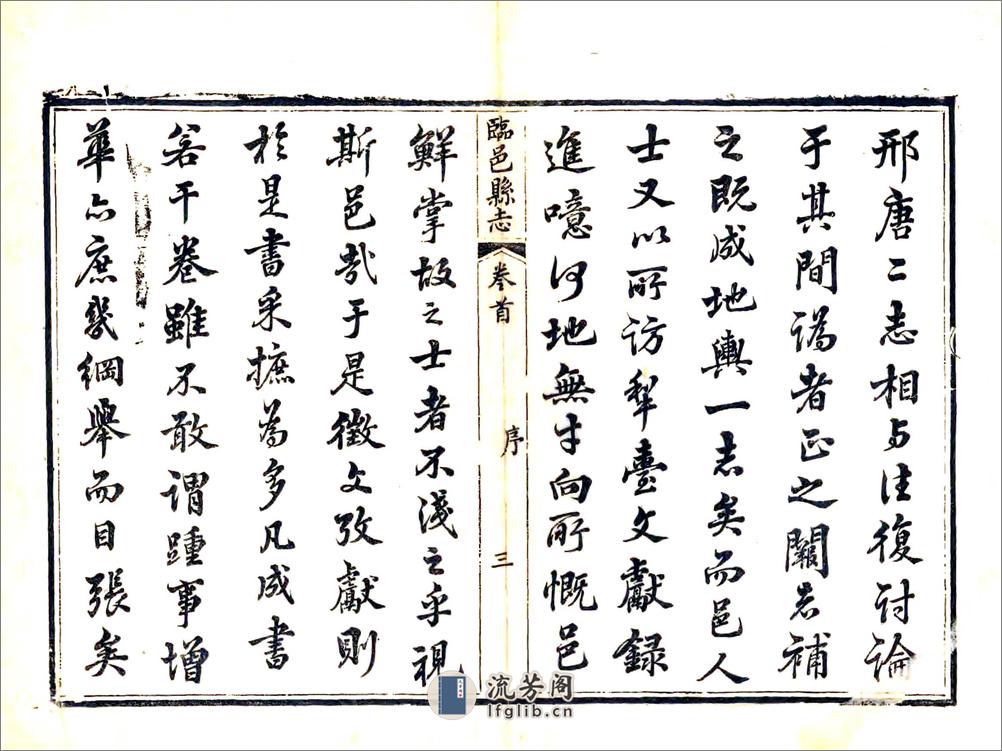 邢唐二志相与往復討論
于其間譌者正之闕者補
之既成地輿一志矣而邑人
士又以所访犁臺文獻録
進噫何地無才向所慨邑
臨邑縣志 卷首 序 三
鮮掌故之士者不淺之乎視
斯邑哉于是徵文攷獻則
於是書采摭為多凡成書
若干卷雖不敢謂踵事增
華亦庶幾綱舉而目張矣
流芳阁
lfglib.cn